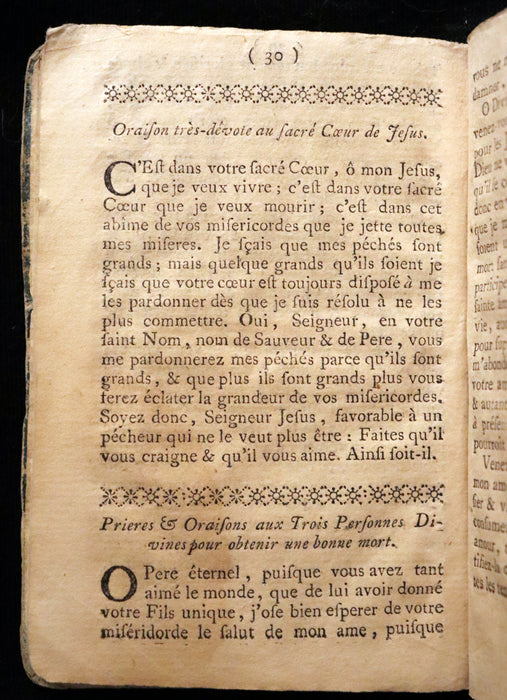 ( 30 )
Oraiſon très-dévote au ſacré Cœur de Jeſus.
C'Eſt dans votre ſacré Cœur, ô mon Jeſus,
que je veux vivre ; c'eſt dans votre ſacré
Cœur que je veux mourir ; c'eſt dans cet
abime de vos miſericordes que je jette toutes
mes miſeres. Je ſçais que mes péchés ſont
grands ; mais quelque grands qu'ils ſoient je
ſçais que votre cœur eſt toujours diſpoſé à me
les pardonner dès que je ſuis réſolu à ne les
plus commettre. Oui, Seigneur, en votre
ſaint Nom, nom de Sauveur & de Pere, vous
me pardonnerez mes péchés parce qu'ils ſont
grands, & que plus ils ſont grands plus vous
ferez éclater la grandeur de vos miſericordes.
Soyez donc, Seigneur Jeſus, favorable à un
pécheur qui ne le veut plus être : Faites qu'il
vous craigne & qu'il vous aime. Ainſi ſoit-il.
Prieres & Oraiſons aux Trois Perſonnes Di-
vines pour obtenir une bonne mort.
O Pere éternel, puiſque vous avez tant
aimé le monde, que de lui avoir donné
votre Fils unique, j'oſe bien eſperer de votre
miſéridorde le ſalut de mon ame, puiſque
vous ne
damner,
O Di
venez
pour les
Dieu ne
qu'il ſe
donc en
que je m
ſoient
mort
participe
ſainte
vie, au
pour
m'abon
votre am
& autant
à préſe
pourroit
Vene
mon am
ſier & v
conſume
amour,
tifiez-la